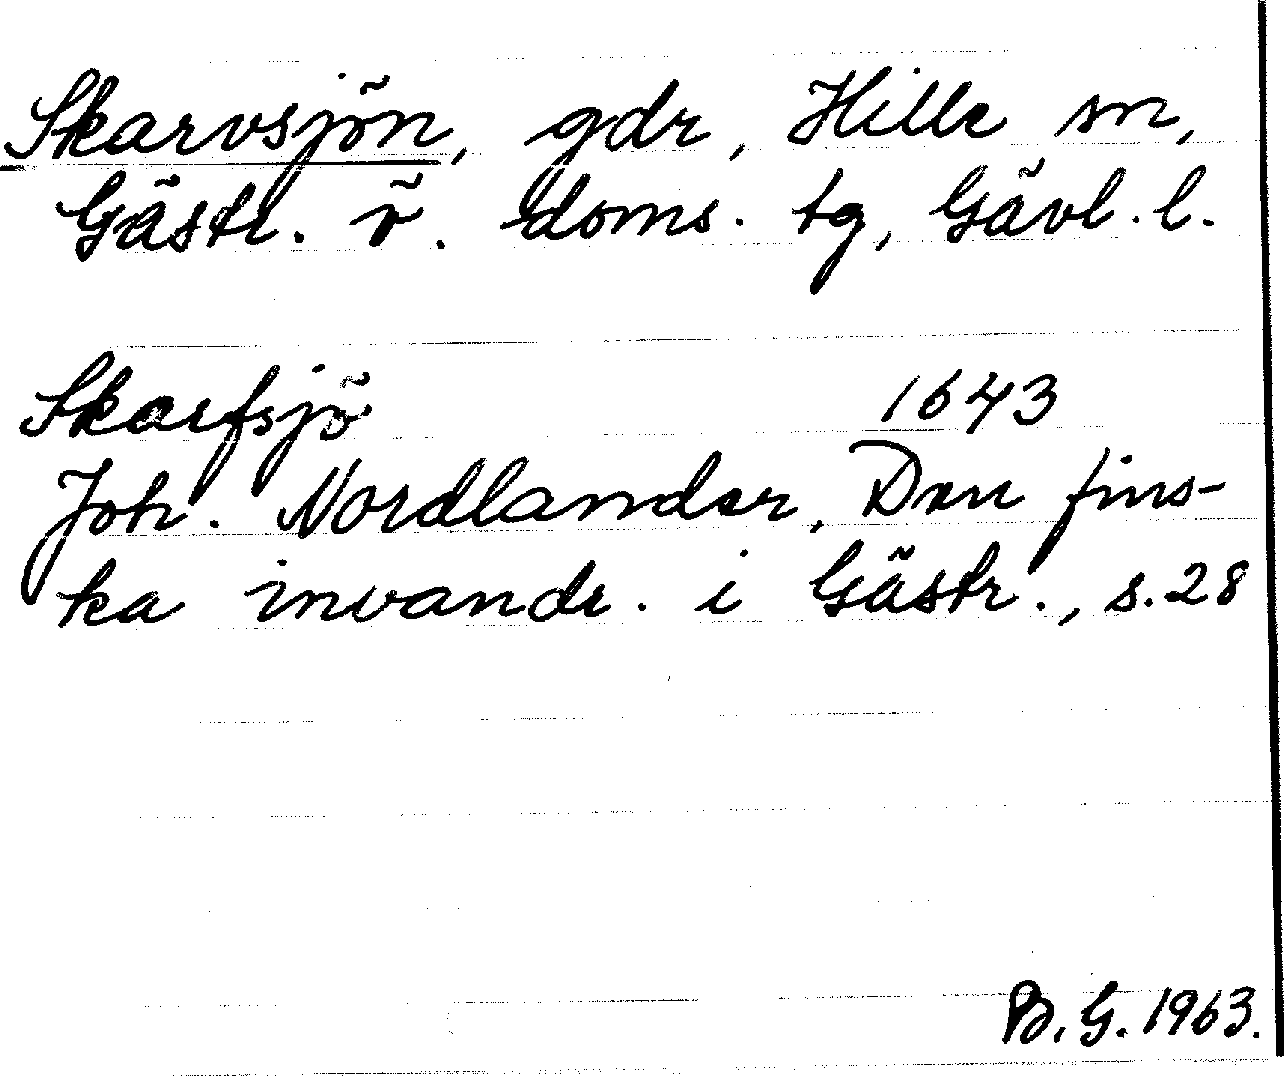 Skarvsjön, gdr, Hille sn,
Gästr. ö. doms. tg, Gävl. l.
Skarfsjö 1643
Joh. Nordlander, Den fins-
ka invandr. i Gästr., s. 28
B. G. 1963.